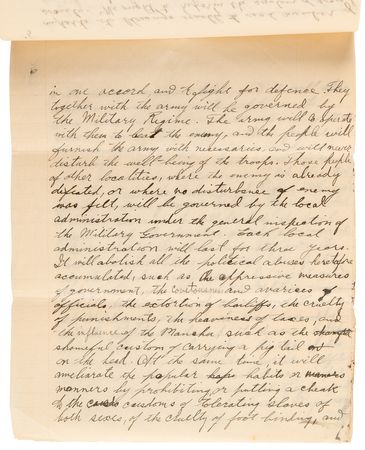 in one accord and to fight for defence. They
together with the army will be governed by
the Military Regime. The army will cooperate
with them to beat the enemy, and the people will
furnish the army with necessaries, and will never
disturb the well-being of the troops. Those people
of other localities, where the enemy is already
defeated, or where no disturbance of enemy
was felt, will be governed by the local
administration under the general inspection of
the Military Government. Each local
administration will last for three years.
It will abolish all the political abuses heretofore
accumulated, such as the oppressive measures
of government, the and avarices of
officials, the extortion of bailiffs, the cruelty
of punishments, the heaviness of taxes, and
the influence of the Manchu, such as the
shameful custom of carrying a pig tail
on the head. At the same time, it will
ameliorate the popular habits or
manners by prohibiting or putting a check
to the customs of tolerating slaves of
both sexes, of the cruelty of foot binding, and